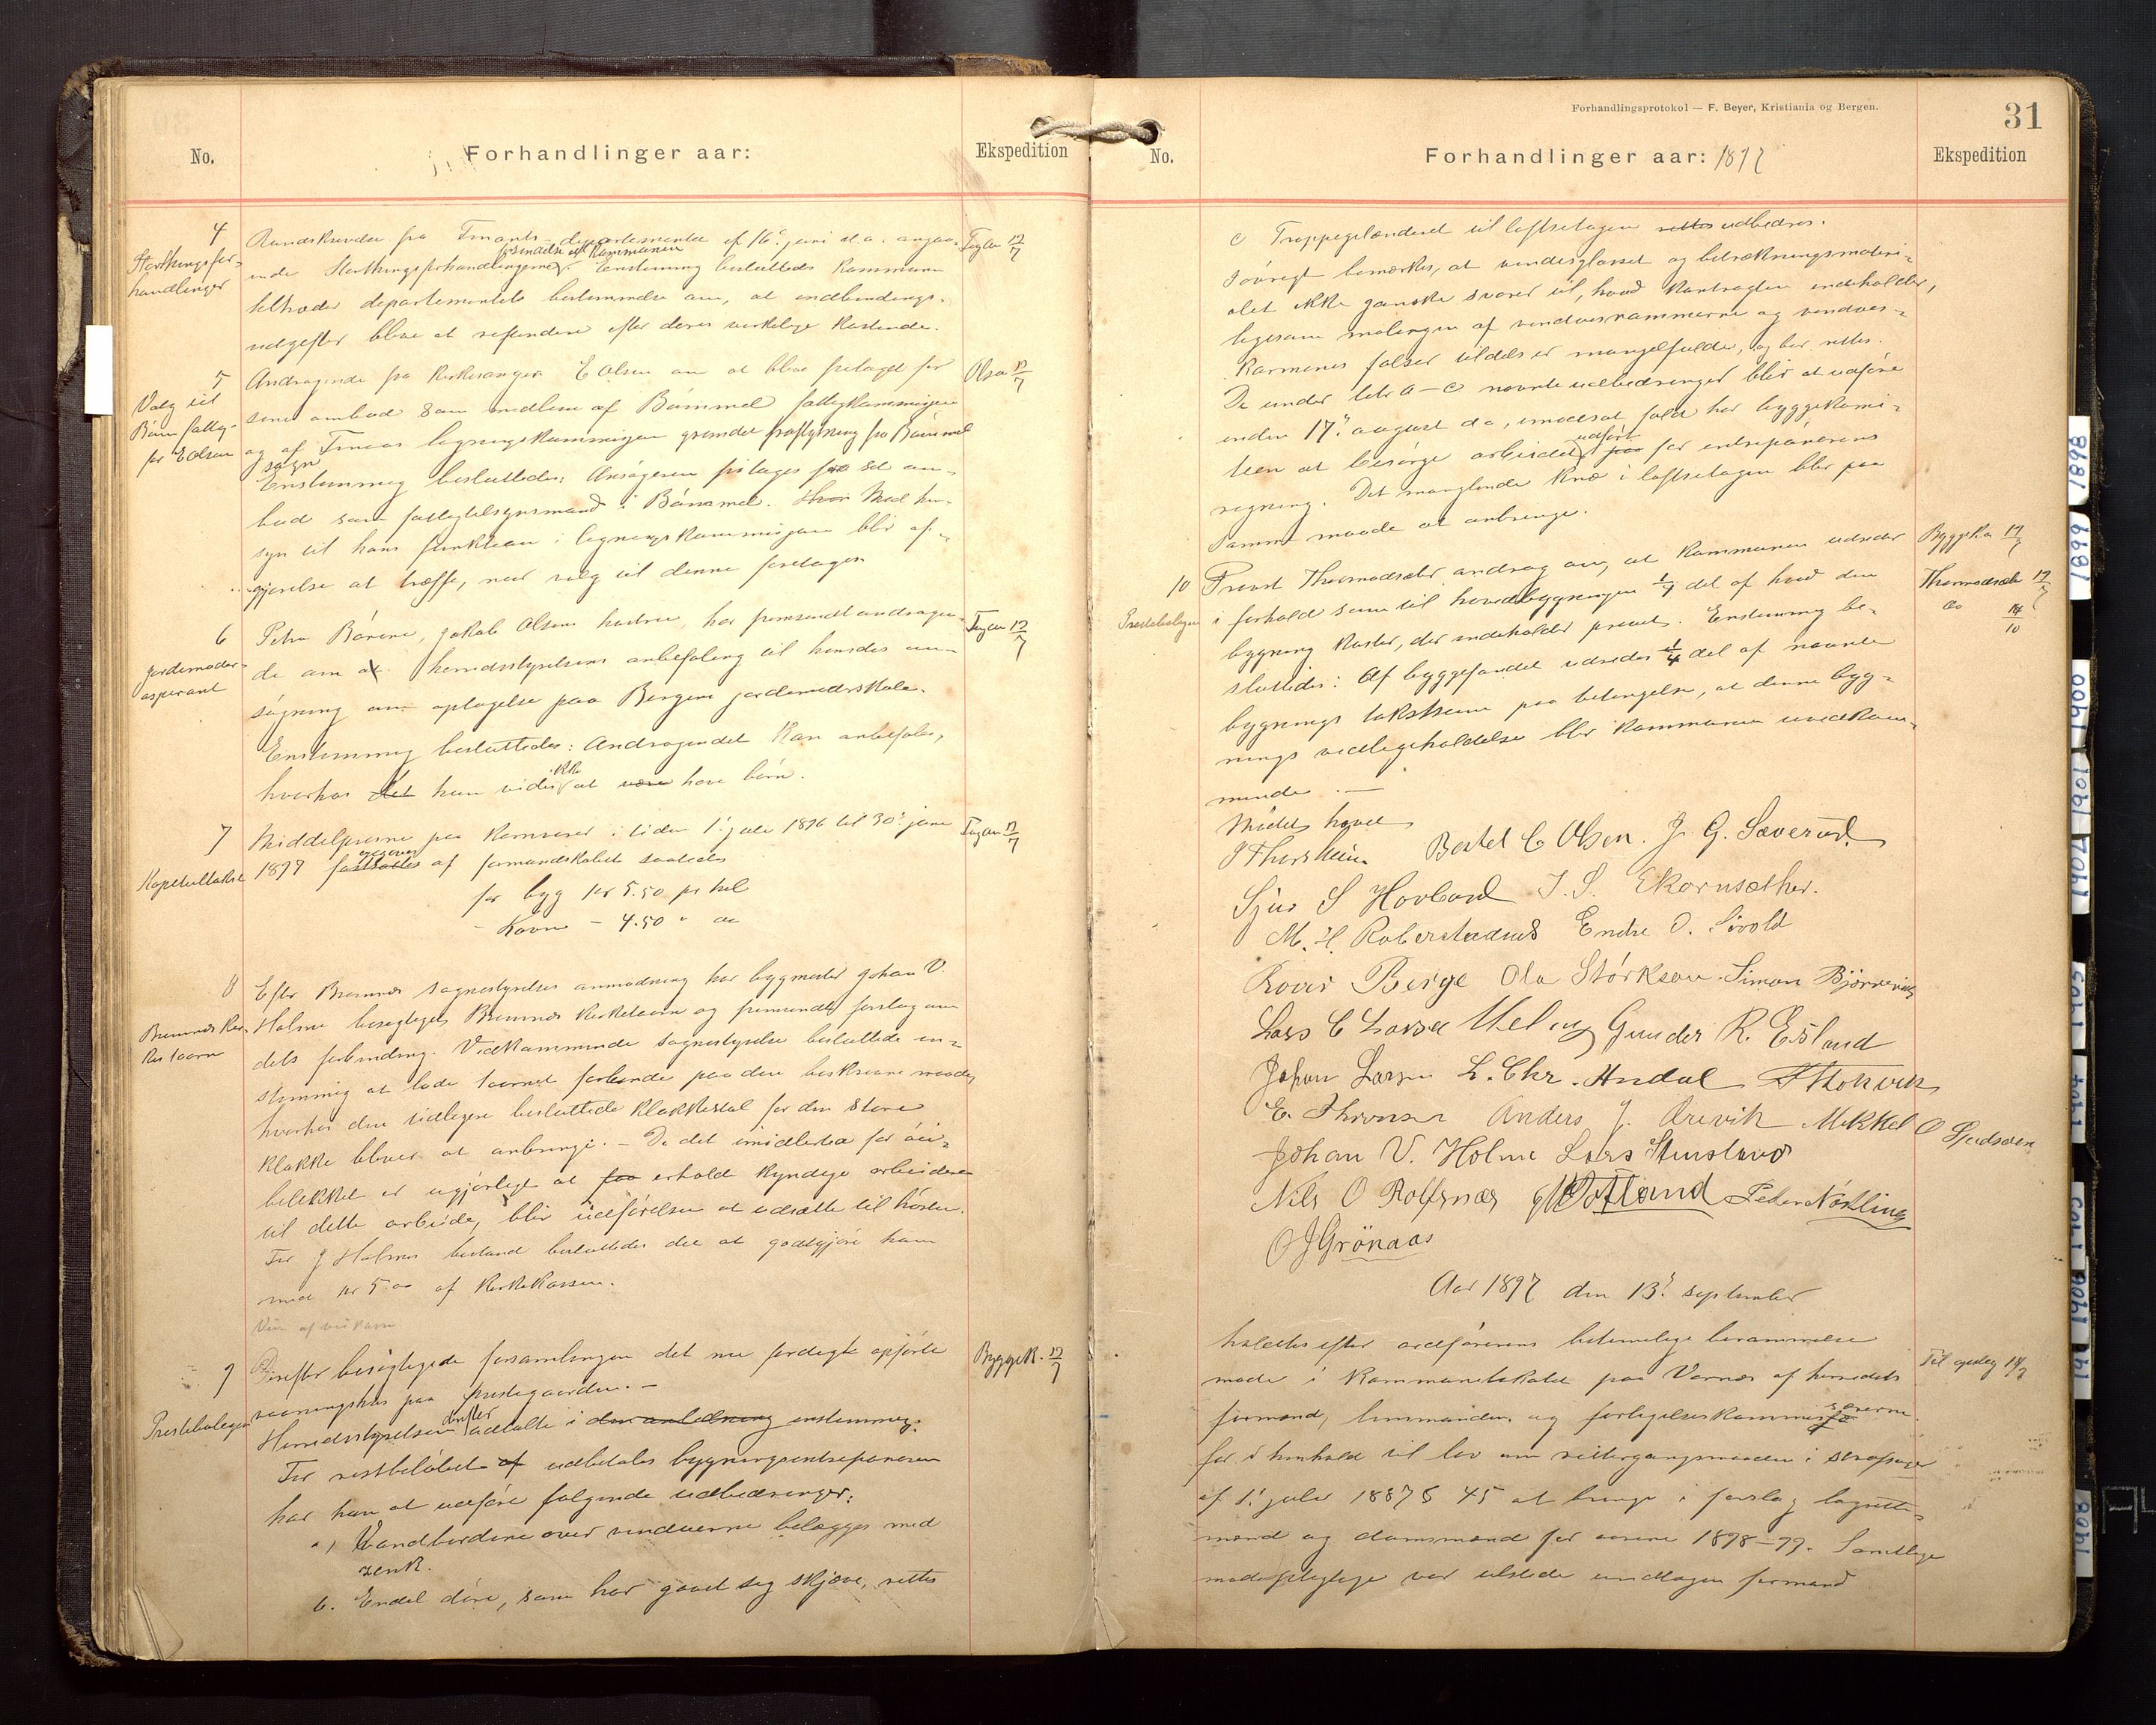 No.
Forhandlinger aar:
Ekspedition
4
Storthingsfor-
handlinger
Rundskrivelse fra Finants-departementet af 16de juni d.a. angaa-
tilsendte kommunen
ende Storthingsforhandlingerne. Enstemmig besluttedes: Kommunen
tiltræder departementets bestemmelse om, at indbindings-
udgifter blive at refundere efter deres virkelige kostende.
Fogden 12/7
5
Valg til
Børn fattig-
for E Olsen
Andragende fra kirkesanger E Olsen om at blive fritaget for
sine ombud som medlem af Bömmel fattigkommisjon
og af Finaas ligningskommisjon grundet fraflytning fra Bömmel
sogn
Enstemmig besluttedes: Ansøgeren fritages for sit om-
bud som fattigtilsynsmand i Bömmel. Hvor Med hen-
syn til hans funktion i ligningskommisjonen blir af-
gjørelse at træffe, naar valg til denne foretages
Olsen 12/7
6
Jordemoder-
aspirant
Petra Börøen, Jakob Olsens hustru, har fremsendt andragen-
de om at herredsstyrelsens anbefaling til hendes an-
søgning om optagelse paa Bergens jordemoderskole.
Enstemmig besluttedes: Andragendet kan anbefales,
ikke
hvorhos det hun vides at være have börn.
Fogden 12/7
7
Kapitelstakst
Middelpriserne paa kornvarer i tiden 1. juli 1896 til 30. juni
opgaves
1897 fastsattes af formandskabet saaledes
for byg kr 5.50 pr hel
- havre - 4.50 " do
Fogden 12/7
8
Bremnes kir-
ketaarn
Efter Bremnes sognestyrelses anmodning har bygmester Johan V.
Holme besigtiget Bremnes kirketaarn og fremsendt forslag om
dets forbinding. Vedkommende sognestyrelse besluttede en-
stemmig at lade taarnet forbinde paa den beskrevne maade,
hvorhos den tidligere besluttede klokkestol for den store
klokke bliver at anbringe. – Da det imidlertid for öie-
blikket er ugjørligt at faa erholde kyndige arbeidere
til dette arbeide, blir udførelsen at udsætte til høsten.
For J Holmes bistand besluttedes det at godtgjøre ham
med kr 5.00 af kirkekassen.
9
Prestebolegen
Derefter besigtigede forsamlingen det nu færdigt opførte
vaaningshus paa prestegaarden. –
derefter
Herredsstyrelsen udtalte i den anledning enstemmig:
Før restbeløbet af udbetales bygningsentreprenøren
har han at udføre følgende udbedringer:
a, Vandbordene over vinduerne belægges med
zink.
b. Endel döre, som har gaaet sig skjæve, rettes
Byggek. 12/7
Forhandlingsprotokol — F. Beyer, Kristiania og Bergen.
31
No.
Forhandlinger aar: 1897
Ekspedition
c Trappegelænderet til loftsetagen rettes udbedres.
Iövrigt bemærkes, at vinduesglasset og beslækningsmateri-
alet ikke ganske svarer til, hvad kontragten indeholder,
ligesom malingen af vinduesrammerne og vindues-
karmenes falser tildels er mangelfulde, og bør rettes.
De under litr a-c nævnte udbedringer blir at udføre
inden 17de august d.a., imodsat fald har byggekomi-
udført
teen at besørge arbeidet paa for entreprenørens
regning. Det manglende knæ i loftsetagen blir paa
samme maade at anbringe.
Byggekom 12/7
10
Prestebolegen
Provst Thormodsæter androg om, at kommunen udreder
i forhold som til hovedbygningen 1/4 del af hvad den
bygning koster, der indeholder privet. Enstemmig be-
sluttedes: Af byggefondet udredes 1/4 del af nævnte
bygnings takstsum paa betingelse, at denne byg-
nings vedligeholdelse blir kommunen uvedkom-
mende. –
Thormodsæter 12/7
do 14/10
Mödet hævet
J Thorsheim Bertel C Olsen. J. G. Sæverud.
Sjur S Hovland J. S. Ekornsæther.
M. H. Roberstadnes Endre O. Sövold
Roar Berge Ola Störksen. Simon Björnevik
Lars C Larsen Meling Gunder R. Esland
Johan Larsen L. Chr. Andal S Stokvik
E. Thronsen Anders J. Ørevik Mikkel O Gjedsvien
Johan V. Holme Lars Stensland
Nils O Rolfsnæs Totland Peder Nötling
O J Grönaas
Aar 1897 den 13de september
holdtes efter ordførerens betimelige berammelse
møde i kommunelokalet paa Vornes af herredets
formænd, lensmanden og forligelseskommissærerne
for i henhold til lov om rettergangsmaaden i straffesager
af 1. juli 1887 § 45 at bringe i forslag lagrette-
mænd og domsmænd for aarene 1898-99. Samtlige
mødepligtige var tilstede undtagen formand
Til opslag 14/9
1898
1899
1900
1901
1902
1903
1904
1905
1906
1908